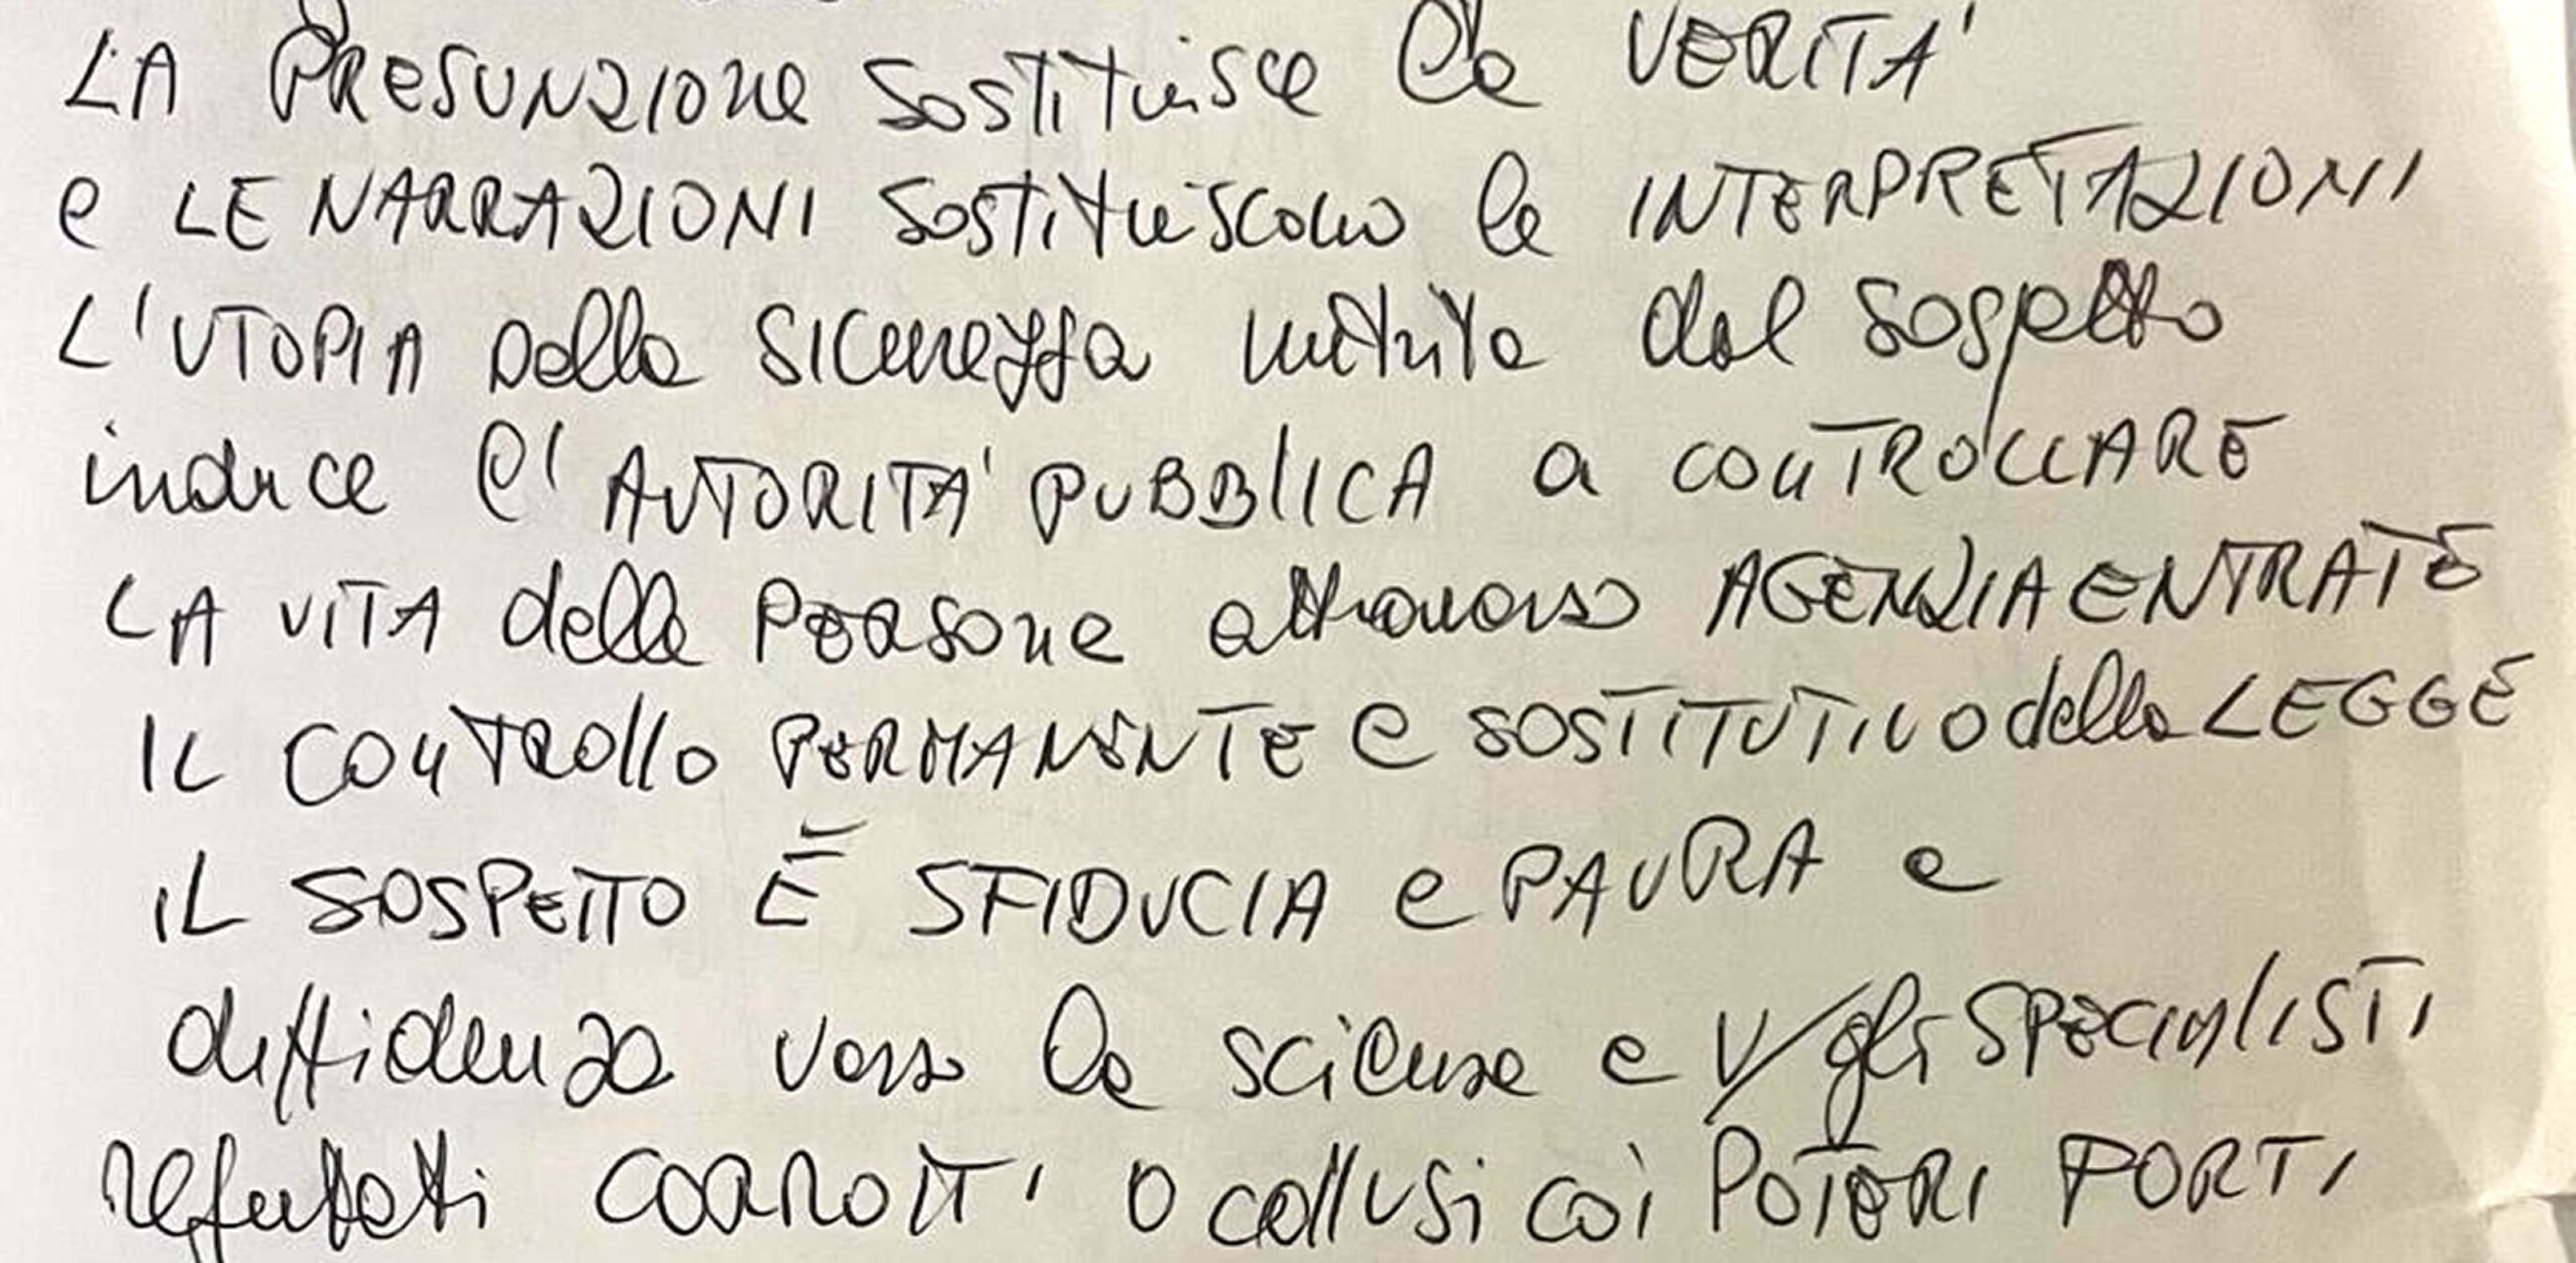 LA PRESUNZIONE sostituisce la VERITA'
e LE NARRAZIONI sostituiscono le INTERPRETAZIONI
L'UTOPIA della SICurezza nutrita dal sospetto
induce l'AUTORITA' PUBBlICA a conTROLLARE
LA VITA delle PERSone attraverso AGENZIA ENTRATE
IL CONTROllo PERMANENTE e SOSTITUTIVO della LEGGE
IL SOSPETTO È SFIDUCIA e PAURA e
diffidenza verso la scienza e V/gli SPECIAlISTI
reputati CORROTTI o collUSi coi POTERI FORTI